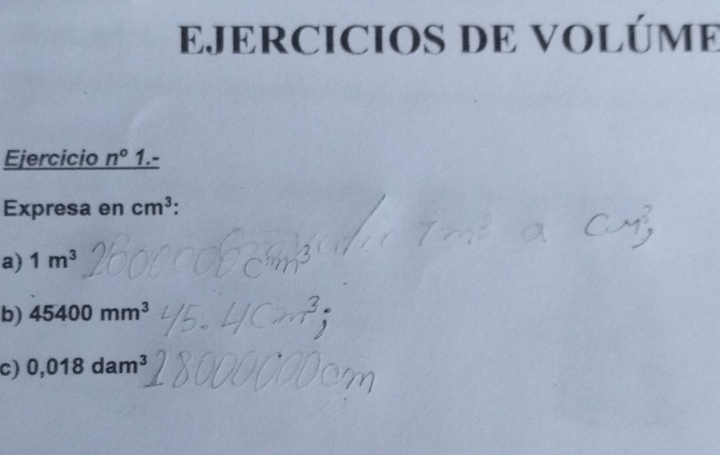 EJERCICIOS DE VOLÚME
Ejercicio nº 1.-
Expresa en cm³:
1m³ a cm³,
a) 1 m³ cm³
b) 45400 mm³ 45.4cm³;
c) 0,018 dam³ 18000000cm